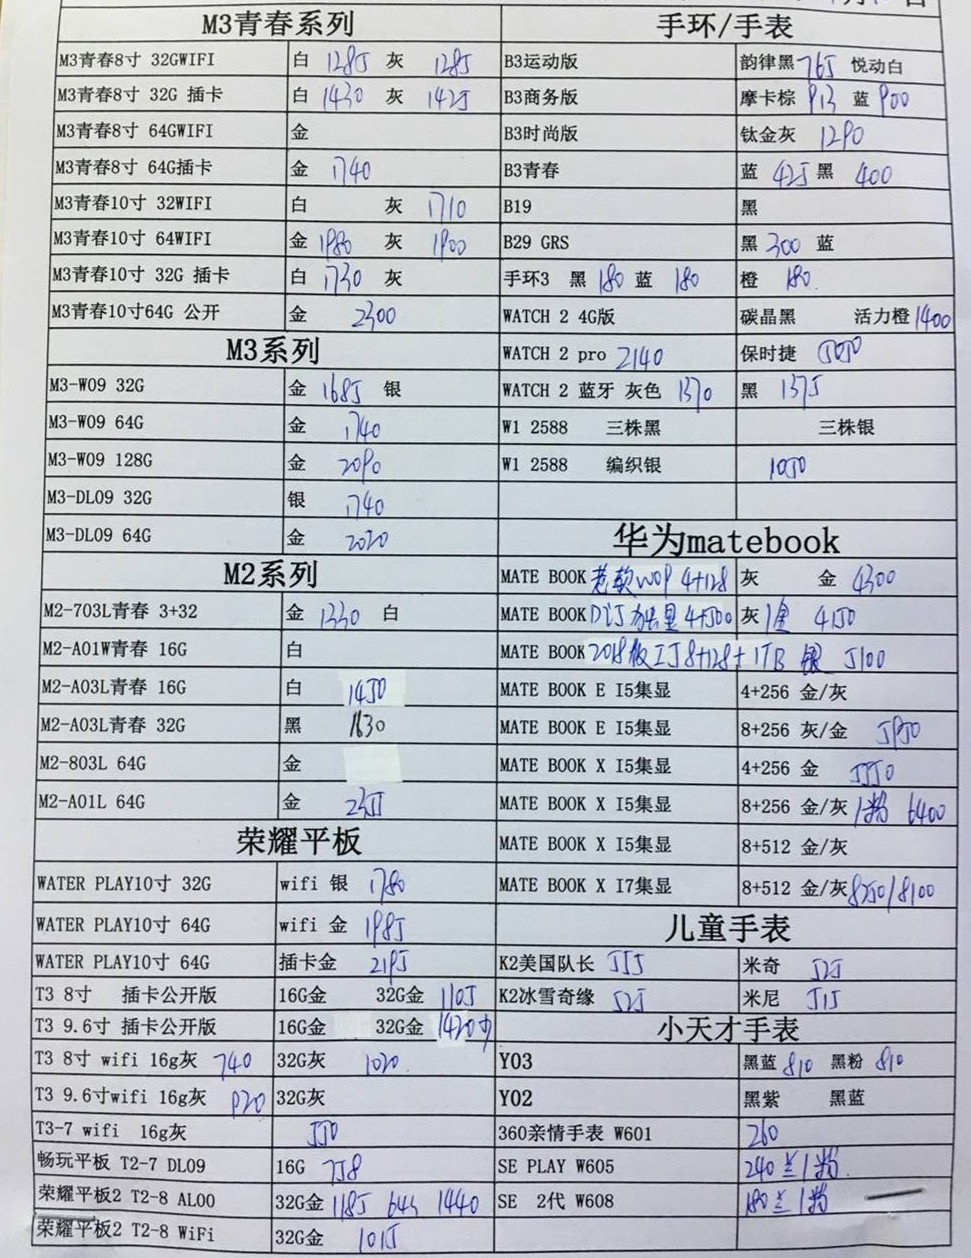 M3青春系列
M3青春8寸 32GWIFI 白 1285 灰 1285
M3青春8寸 32G 插卡 白 1430 灰 1425
M3青春8寸 64GWIFI 金
M3青春8寸 64G插卡 金 1740
M3青春10寸 32WIFI 白 灰 1710
M3青春10寸 64WIFI 金 1980 灰 1900
M3青春10寸 32G 插卡 白 1730 灰
M3青春10寸64G 公开 金 2300
M3系列
M3-W09 32G 金 1685 银
M3-W09 64G 金 1740
M3-W09 128G 金 2090
M3-DL09 32G 银 1740
M3-DL09 64G 金 2020
M2系列
M2-703L青春 3+32 金 1330 白
M2-A01W青春 16G 白
M2-A03L青春 16G 白 1450
M2-A03L青春 32G 黑 1630
M2-803L 64G 金
M2-A01L 64G 金
荣耀平板
WATER PLAY10寸 32G wifi 银 1780
WATER PLAY10寸 64G wifi 金 1985
WATER PLAY10寸 64G 插卡金 2195
T3 8寸 插卡公开版 16G金 32G金 1105
T3 9.6寸 插卡公开版 16G金 32G金 1420
T3 8寸 wifi 16g灰 740 32G灰 1020
T3 9.6寸wifi 16g灰 920 32G灰
T3-7 wifi 16g灰 550
畅玩平板 T2-7 DL09 16G 758
荣耀平板2 T2-8 AL00 32G金 1185 64G 1440
荣耀平板2 T2-8 WiFi 32G金 1015
手环/手表
B3运动版 韵律黑 765 悦动白
B3商务版 摩卡棕 913 蓝 900
B3时尚版 钛金灰 1290
B3青春 蓝 425 黑 400
B19 黑
B29 GRS 黑 300 蓝
手环3 黑 180 蓝 180 橙 180
WATCH 2 4G版 碳晶黑 活力橙 1400
WATCH 2 pro 2140 保时捷 5050
WATCH 2 蓝牙 灰色 1370 黑 1375
W1 2588 三株黑 三株银
W1 2588 编织银 1050
华为matebook
MATE BOOK 老款W09 4+128 灰 金 4300
MATE BOOK D I5 独显 4+500 灰/金 4150
MATE BOOK 2018版 I5 8+128+1TB 银 5100
MATE BOOK E I5集显 4+256 金/灰
MATE BOOK E I5集显 8+256 灰/金 5950
MATE BOOK X I5集显 4+256 金 5550
MATE BOOK X I5集显 8+256 金/灰/粉 6400
MATE BOOK X I5集显 8+512 金/灰
MATE BOOK X I7集显 8+512 金/灰 8250/8100
儿童手表
K2美国队长 515 米奇 525
K2冰雪奇缘 525 米尼 515
小天才手表
Y03 黑蓝 810 黑粉 810
Y02 黑紫 黑蓝
360亲情手表 W601 260
SE PLAY W605 240 兰/粉
SE 2代 W608 180 兰/粉